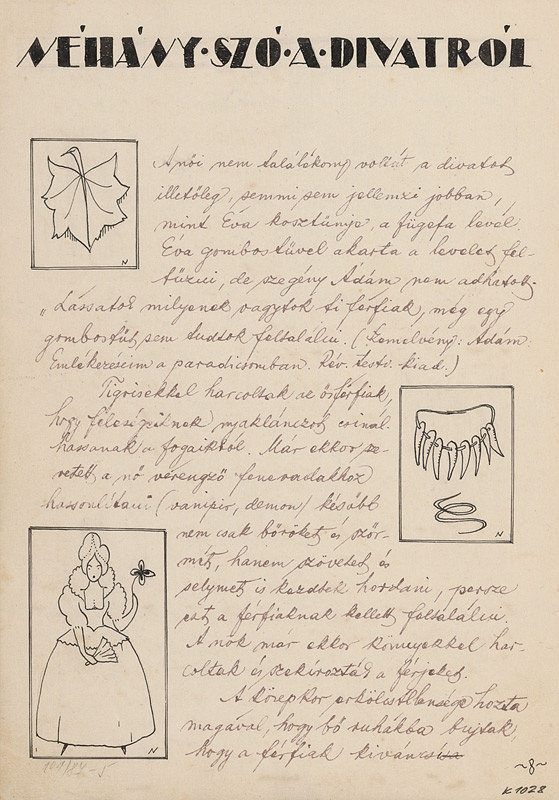 NÉHÁNY·SZÓ·A·DIVATRÓL
A női nem találékony voltát a divatot
illetőleg, semmi sem jellemzi jobban,
mint Éva kosztümje, a fügefa levél.
Éva gombostűvel akarta a levelet fel-
tűzni, de szegény Ádám nem adhatott.
"Lássátok milyenek vagytok ti férfiak, még egy
gombostűt sem tudtok feltalálni. (Szemelvény: Ádám
Emlékezéseim a paradicsomban. Rév. testv. kiad.)
Tigrisekkel harcoltak az ősférfiak,
hogy feleségeiknek nyakláncot csinál-
hassanak a fogaikból. Már ekkor sze-
retett a nő vérengző fenevadakhoz
hasonlítani (vampir, demon) később
nem csak bőröket és ször-
mét, hanem szövetet és
selymet is kezdtek hordani, persze
ezt a férfiaknak kellett feltalálni.
A nők már ekkor könnyekkel har-
coltak és szekírozták a férjeket.
A középkor erkölcstelensége hozta
magával, hogy bő ruhákba bujtak,
hogy a férfiak kiváncsi
~8~
K 1028
N
N
N